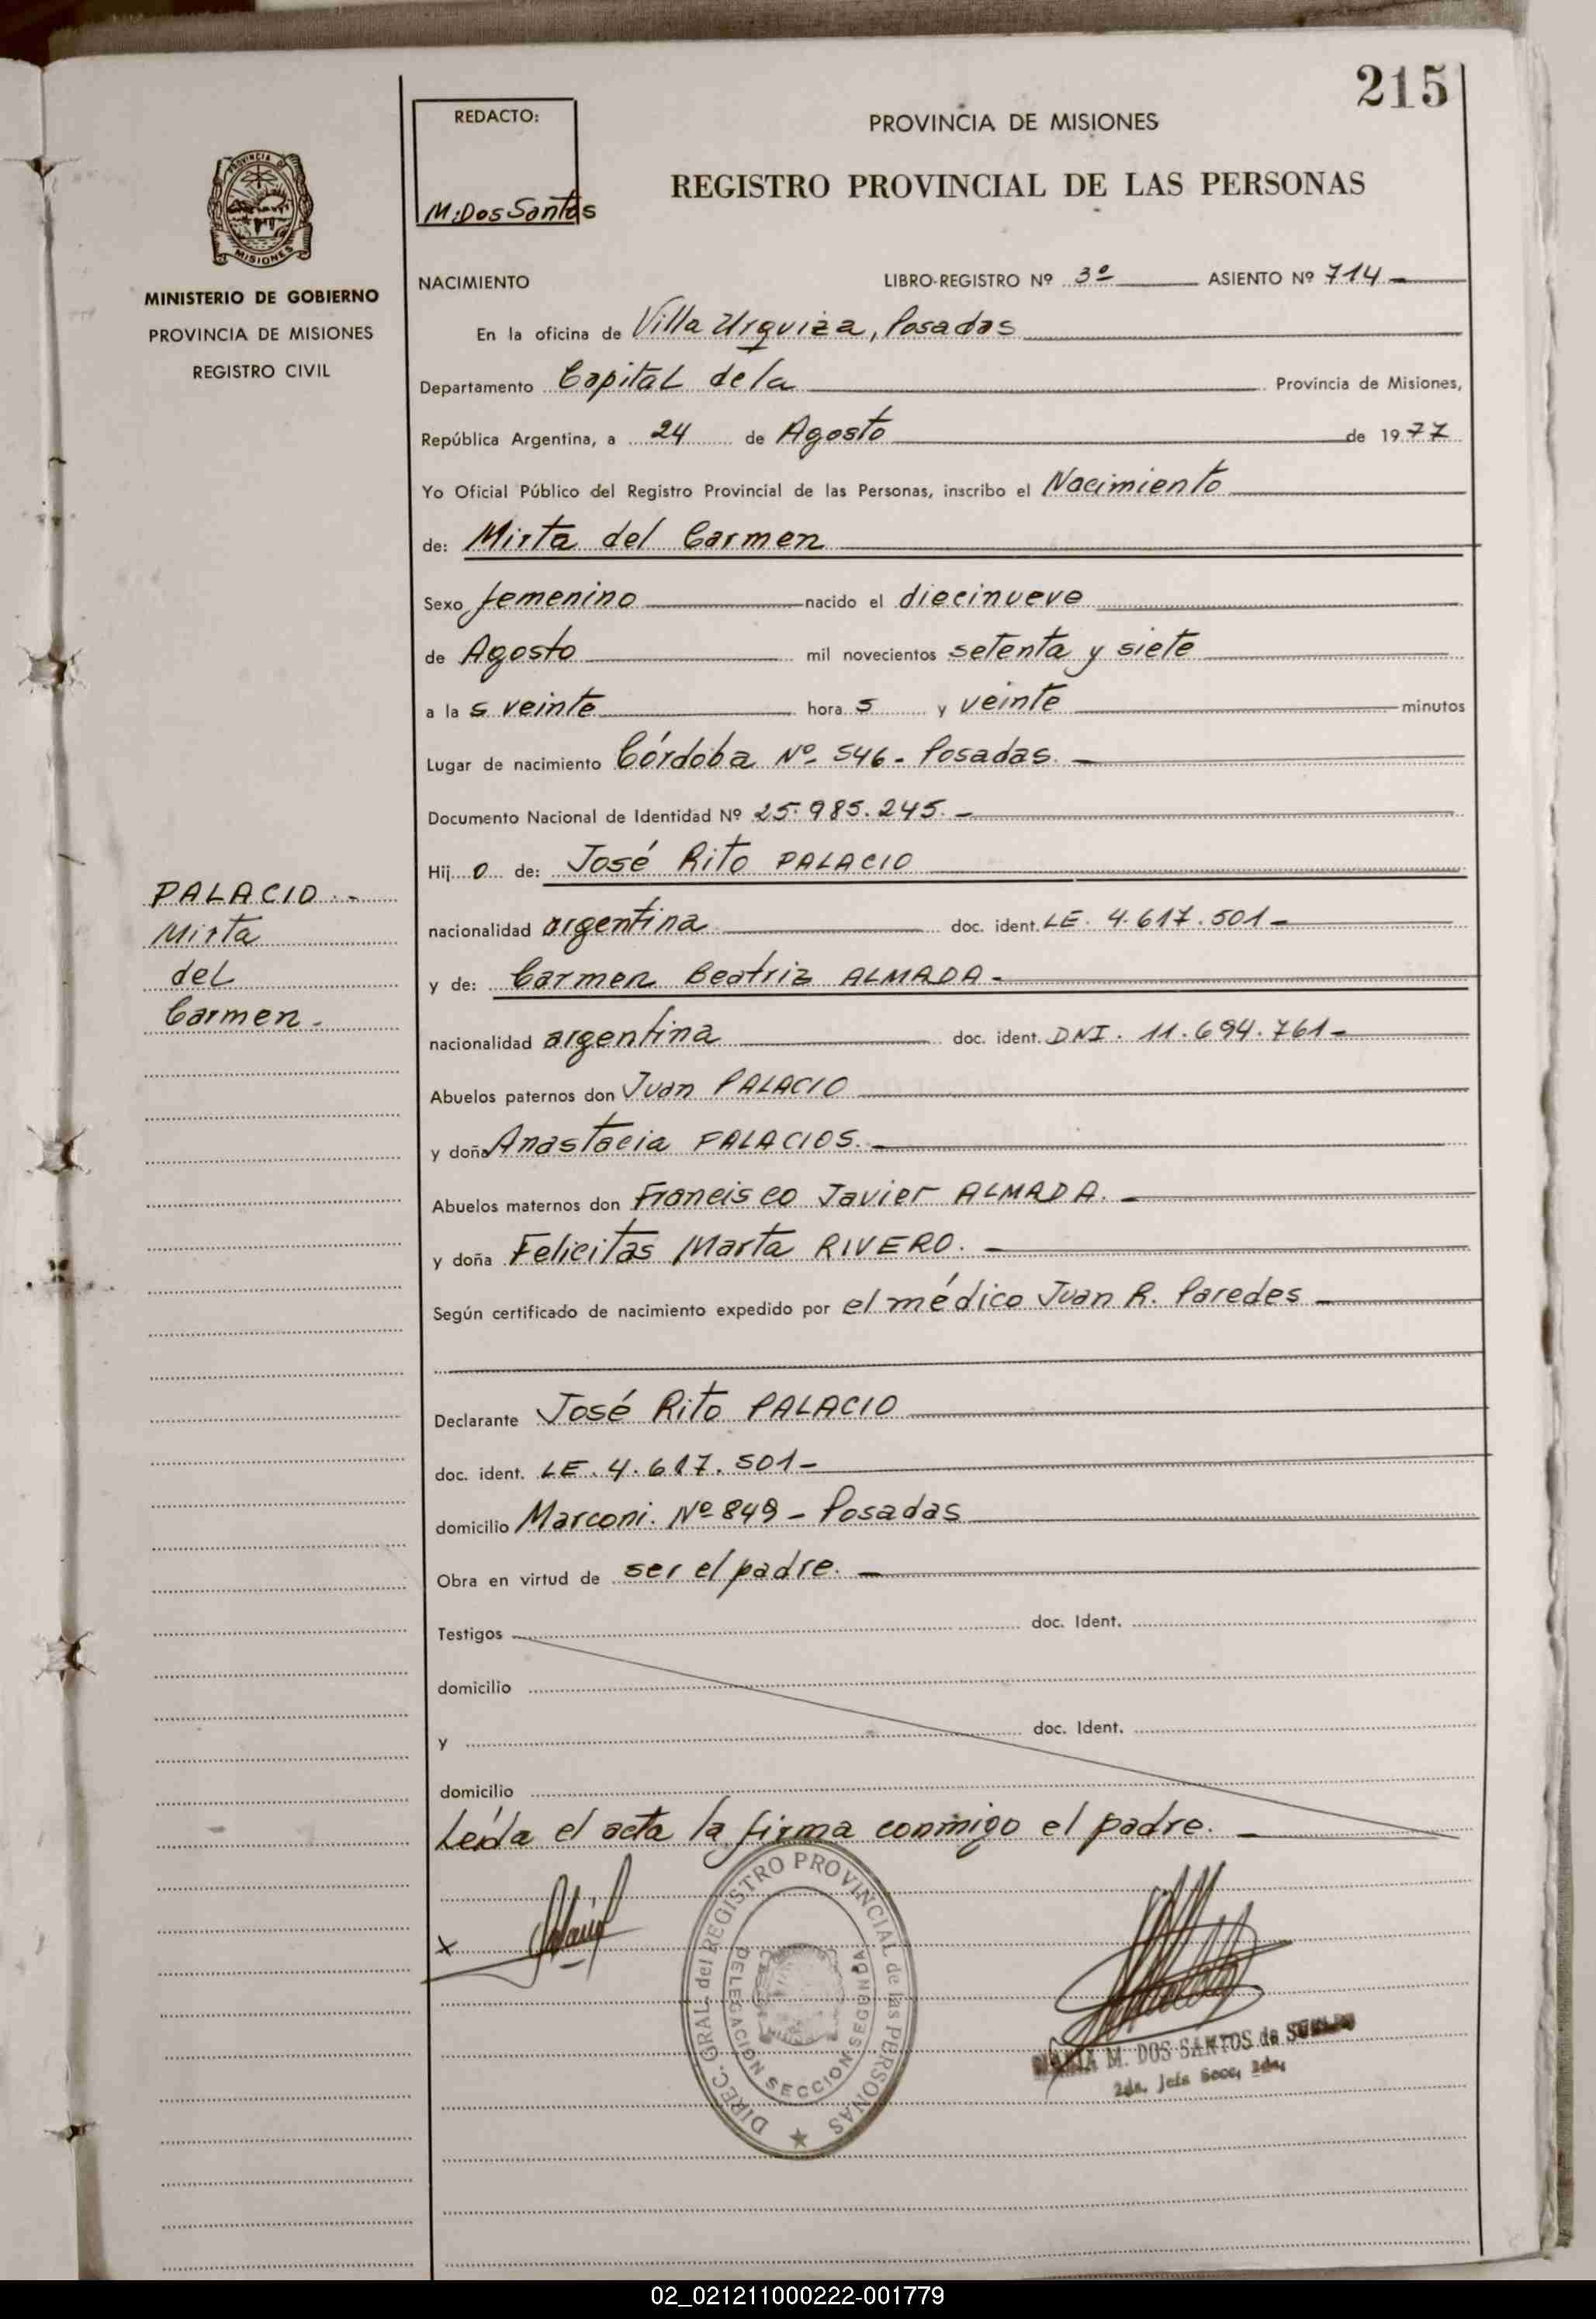 215
REDACTO:
M. Dos Santos
PROVINCIA DE MISIONES
REGISTRO PROVINCIAL DE LAS PERSONAS
PROVINCIA DE
MISIONES
MINISTERIO DE GOBIERNO
PROVINCIA DE MISIONES
REGISTRO CIVIL
NACIMIENTO LIBRO-REGISTRO Nº 3º ASIENTO Nº 714-
En la oficina de Villa Urquiza, Posadas
Departamento Capital de la Provincia de Misiones,
República Argentina, a 24 de Agosto de 1977
Yo Oficial Público del Registro Provincial de las Personas, inscribo el Nacimiento
de: Mirta del Carmen
Sexo femenino nacido el diecinueve
de Agosto mil novecientos setenta y siete
a la s veinte hora s y veinte minutos
Lugar de nacimiento Córdoba Nº 546- Posadas. -
Documento Nacional de Identidad Nº 25.985.245.-
Hij o de: José Rito PALACIO
nacionalidad argentina doc. ident. LE. 4.617.501-
y de: Carmen Beatriz ALMADA-
nacionalidad argentina doc. ident. DNI. 11.694.761-
Abuelos paternos don Juan PALACIO
y doña Anastacia PALACIOS. -
Abuelos maternos don Francisco Javier ALMADA. -
y doña Felicitas Marta RIVERO. -
Según certificado de nacimiento expedido por el médico Juan R. Paredes -
Declarante José Rito PALACIO
doc. ident. LE. 4.617.501-
domicilio Marconi. Nº 849 - Posadas
Obra en virtud de ser el padre. -
Testigos doc. Ident.
domicilio
y doc. Ident.
domicilio
Leída el acta la firma conmigo el padre. -
PALACIO.-
Mirta
del
Carmen.
X
DIREC. GRAL. del REGISTRO PROVINCIAL de las PERSONAS
DELEGACION SECCION SEGUNDA
M. DOS SANTOS de
2da. Jefa Secc. 2da.
02_021211000222-001779